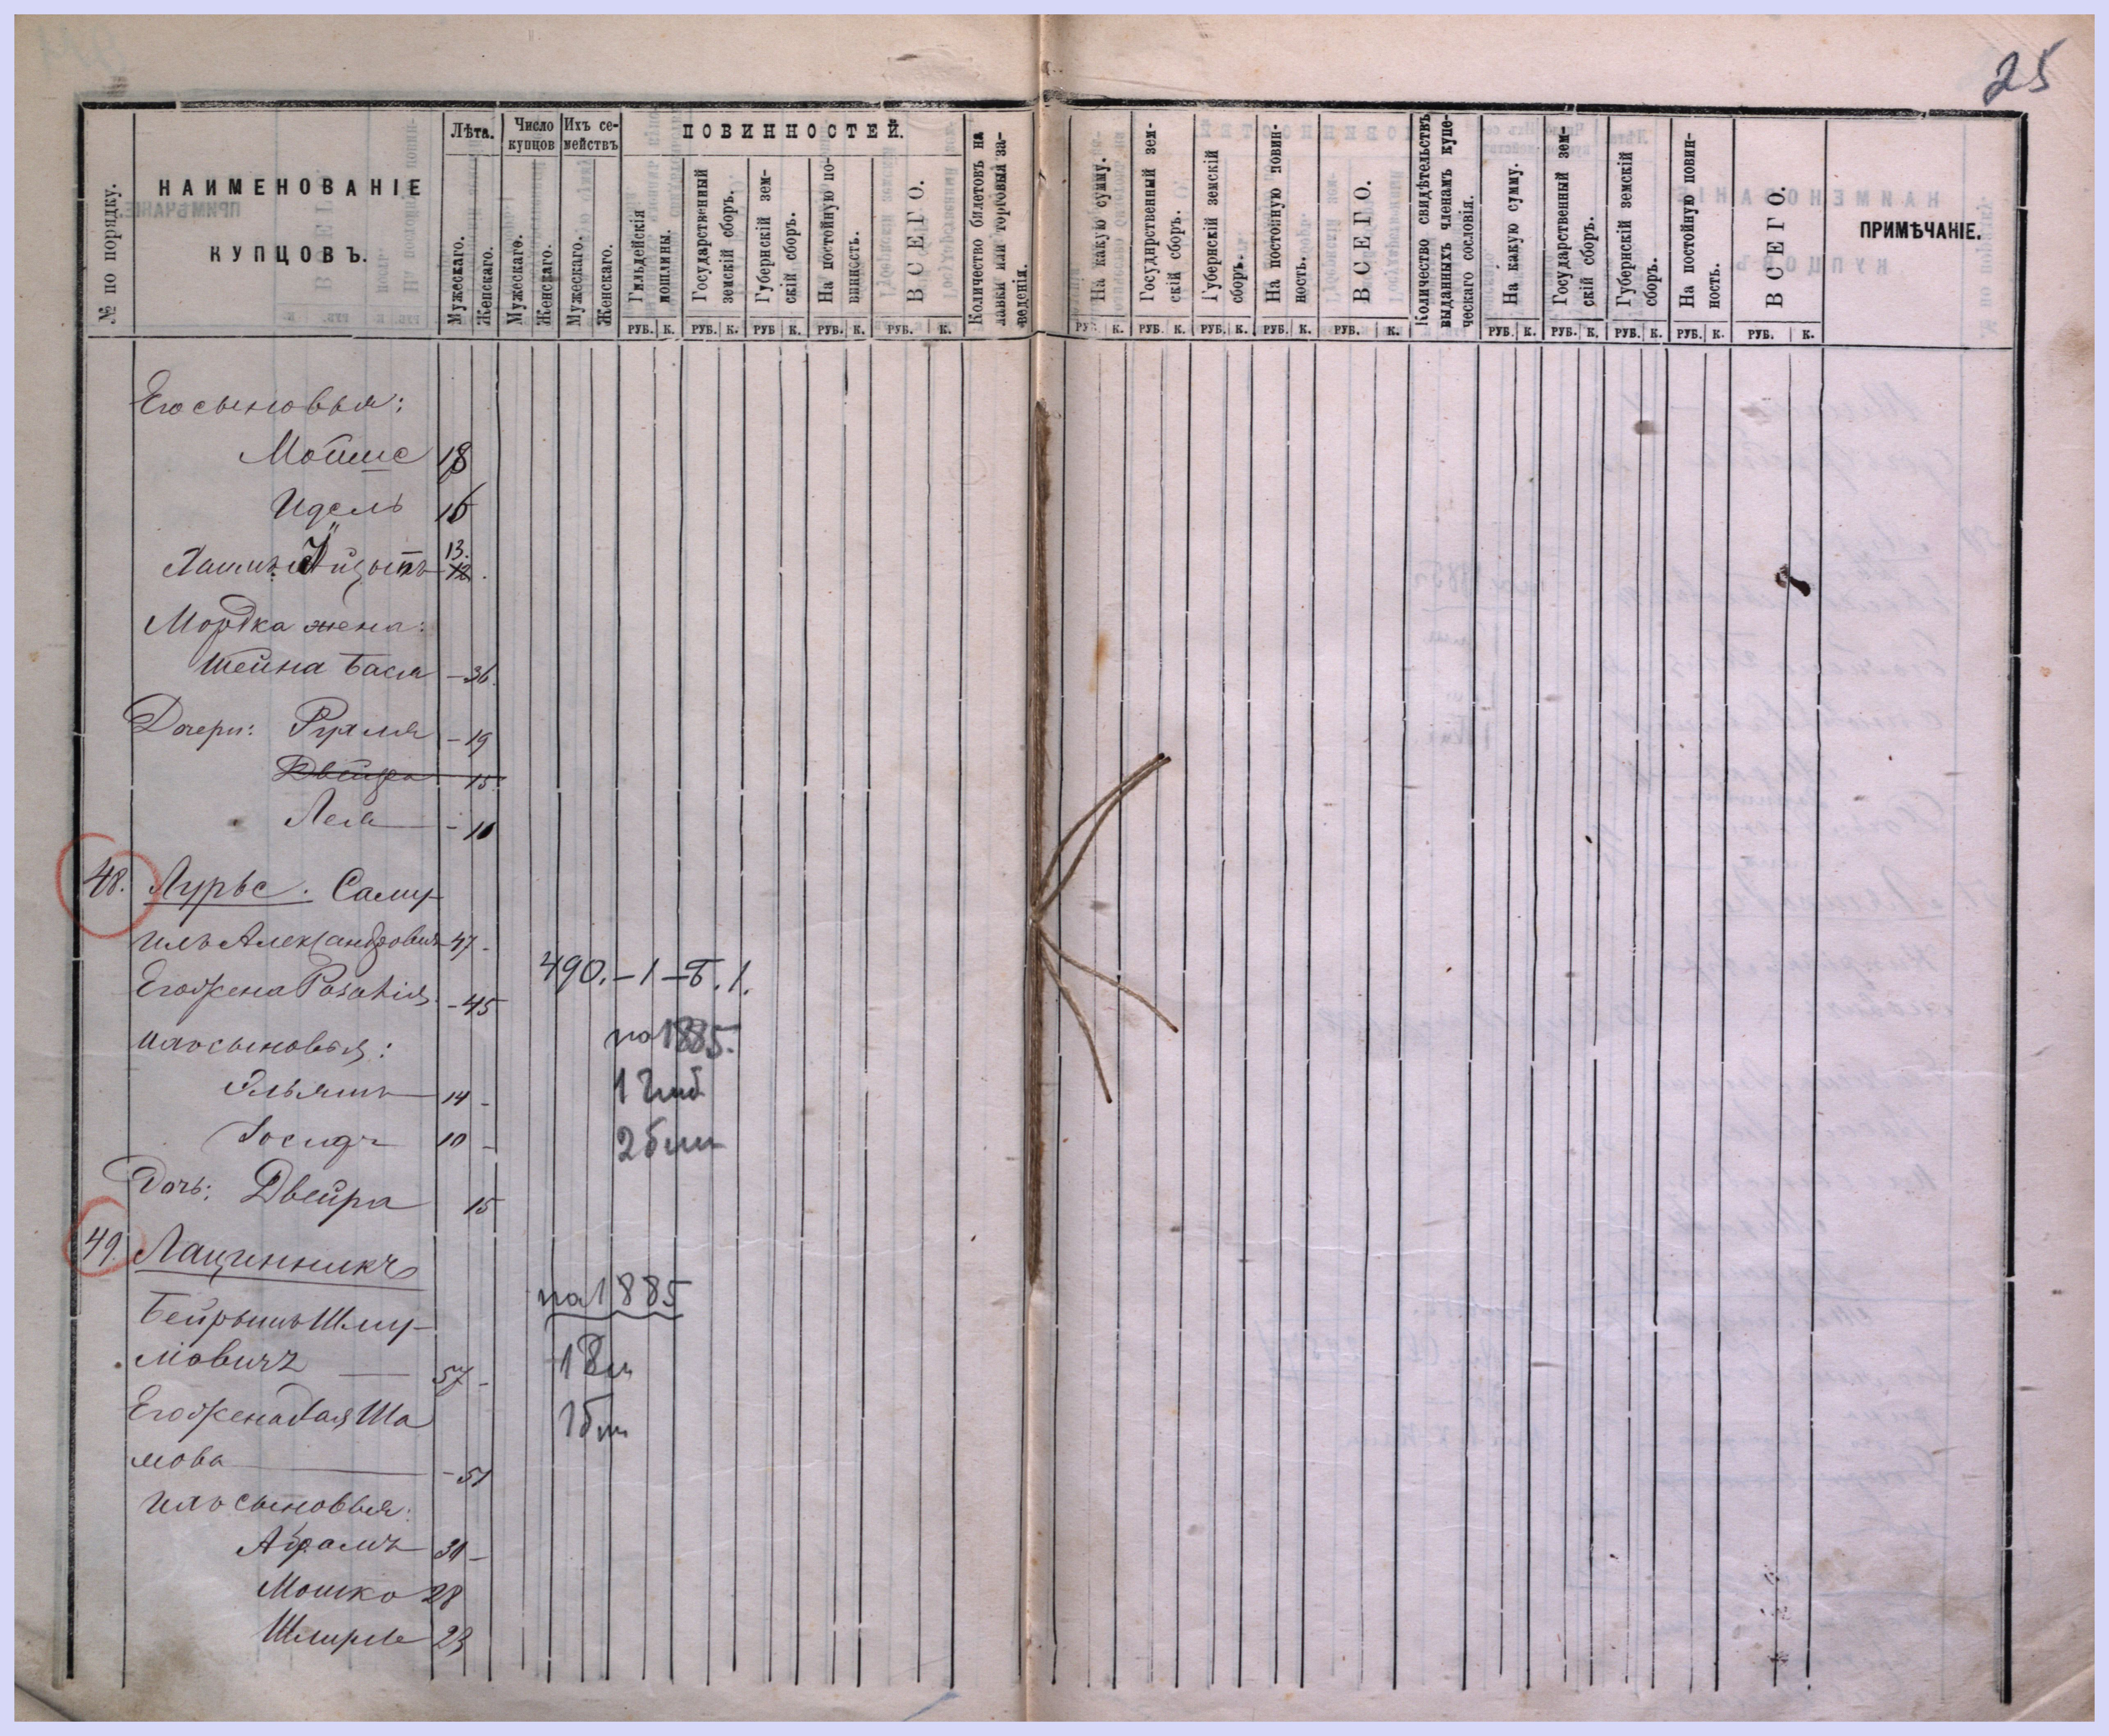 25
№ по порядку.
НАИМЕНОВАНІЕ
КУПЦОВЪ.
Лѣта.
Мужескаго.
Женскаго.
Число купцов
Мужескаго.
Женскаго.
Ихъ семействъ
Мужескаго.
Женскаго.
ПОВИННОСТЕЙ.
Гильдейскія пошлины.
Государственный земскій сборъ.
Губернскій земскій сборъ.
На постойную повинность.
ВСЕГО.
Количество билетовъ на лавки или торговыя заведенія.
На какую сумму.
Государственный земскій сборъ.
Губернскій земскій сборъ.
На постойную повинность.
ВСЕГО.
Количество свидѣтельствъ выданныхъ членамъ купеческаго сословія.
На какую сумму.
Государственный земскій сборъ.
Губернскій земскій сборъ.
На постойную повинность.
ВСЕГО.
ПРИМѢЧАНІЕ.
РУБ. К. РУБ. К. РУБ К. РУБ. К. РУБ. К.
РУБ. К. РУБ. К. РУБ. К. РУБ. К. РУБ. К. РУБ. К. РУБ. К. РУБ. К. РУБ. К. РУБ. К.
Его сыновья:
Мовше 18
Идель 16
13.
12.
Мордка жена:
Шейна Бася - 36.
Дочери: Рухля - 19
Двейра 15
Лея - 10
48. Лурье. Саму-
илъ Александровичъ 47 -
Его жена Розалія - 45
490. - 1 - Б. 1.
ихъ сыновья:
на 1885.
Ильяшъ 14 -
1
Іосифъ 10 -
2 бил
Дочь: Двейра 15
49. Лапинникъ
на 1885
Бейрышъ Шліу-
мовичъ 57 -
1
Его жена Хая Ша
1 бил
мова - 51
ихъ сыновья:
Абрамъ 30 -
Мошко 28
23